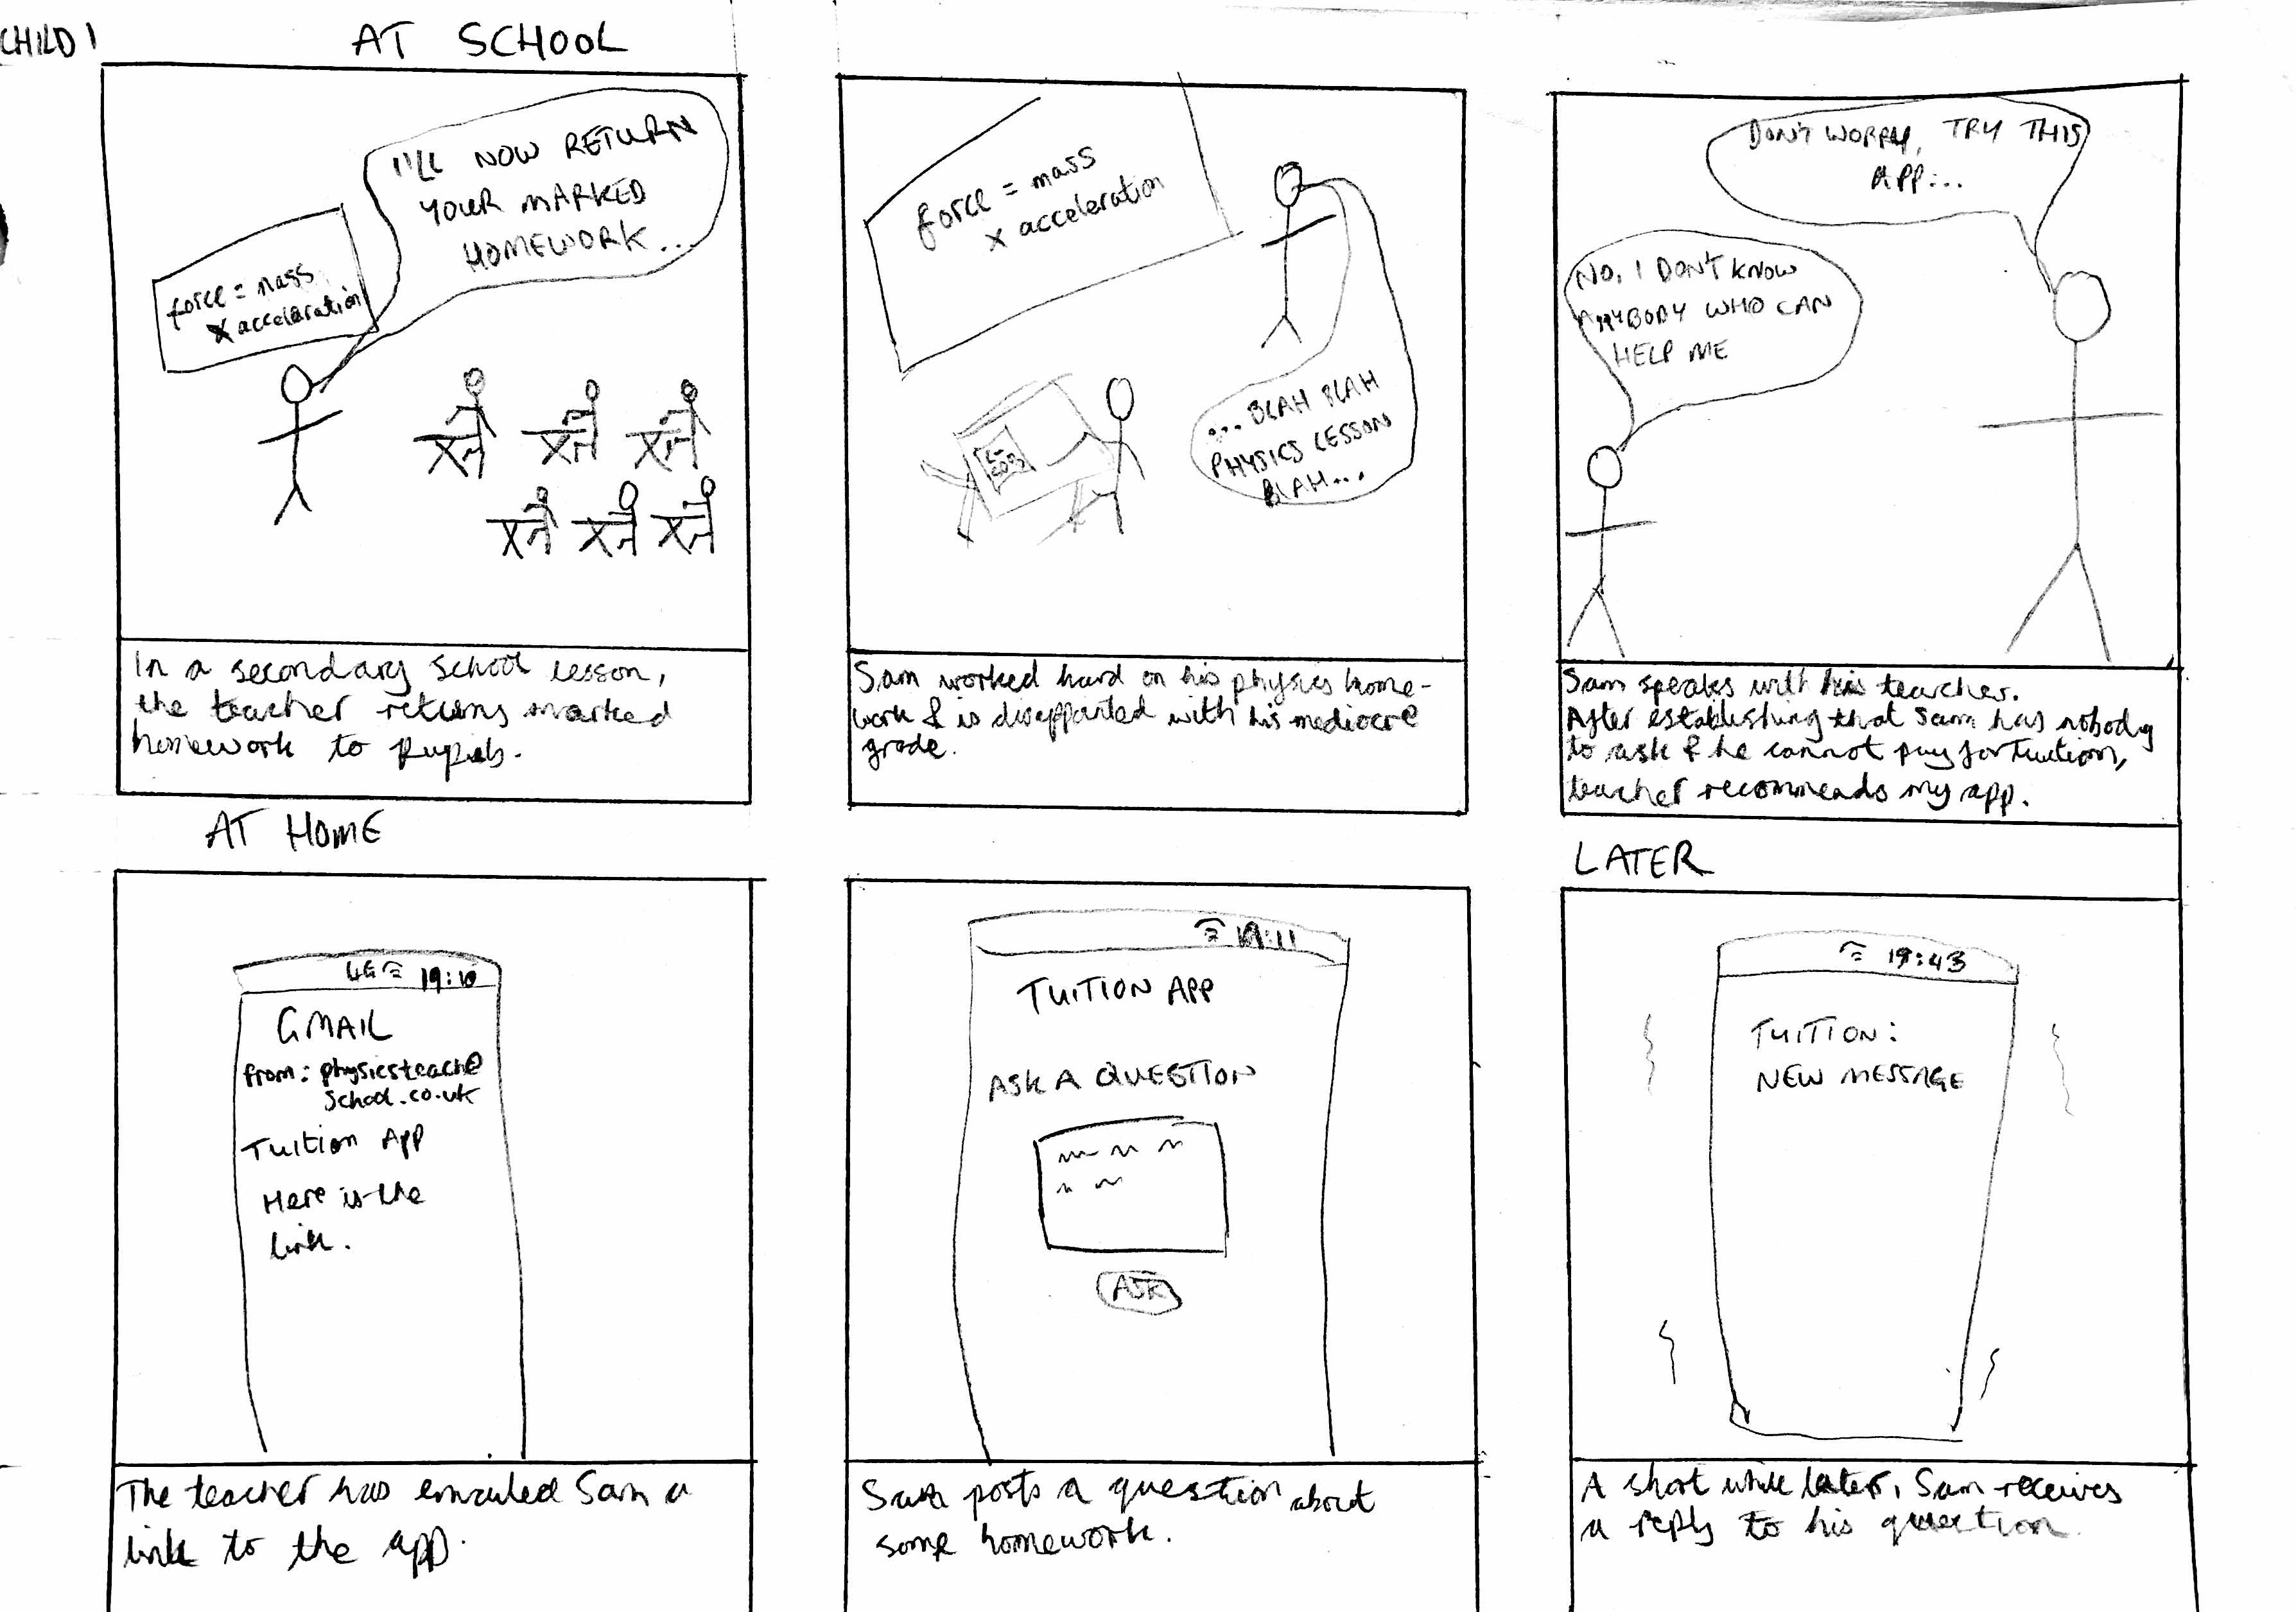 CHILD 1
AT SCHOOL
I'LL NOW RETURN
YOUR MARKED
HOMEWORK...
force = mass
x acceleration
In a secondary school lesson,
the teacher returns marked
homework to pupils.
force = mass
x acceleration
... BLAH BLAH
PHYSICS LESSON
BLAH...
Sam worked hard on his physics home-
work & is disappointed with his mediocre
grade.
DON'T WORRY, TRY THIS
APP...
NO, I DON'T KNOW
ANYBODY WHO CAN
HELP ME
Sam speaks with his teacher.
After establishing that Sam has nobody
to ask & he cannot pay for tuition,
teacher recommends my app.
AT HOME
4G 19:10
GMAIL
from: physicsteach@
school.co.uk
Tuition App
Here is the
link.
The teacher has emailed Sam a
link to the app.
19:11
TUITION APP
ASK A QUESTION
ASK
Sam posts a question about
some homework.
LATER
19:43
TUITION:
NEW MESSAGE
A short while later, Sam receives
a reply to his question.